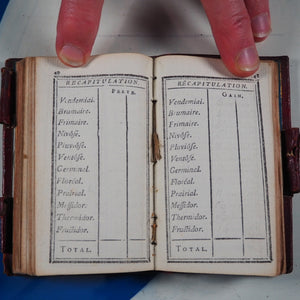 48
RÉCAPITULATION.
PERTE.
Vendemiai.
Brumaire.
Frimaire.
Nivôse.
Pluviôse.
Ventôse.
Germinal.
Floréal.
Prairial.
Messidor.
Thermidor.
Fructidor.
TOTAL.
RÉCAPITULATION.
GAIN.
Vendemiai.
Brumaire.
Frimaire.
Nivôse.
Pluviôse.
Ventôse.
Germinal.
Floréal.
Prairial.
Messidor.
Thermidor.
Fructidor.
TOTAL.